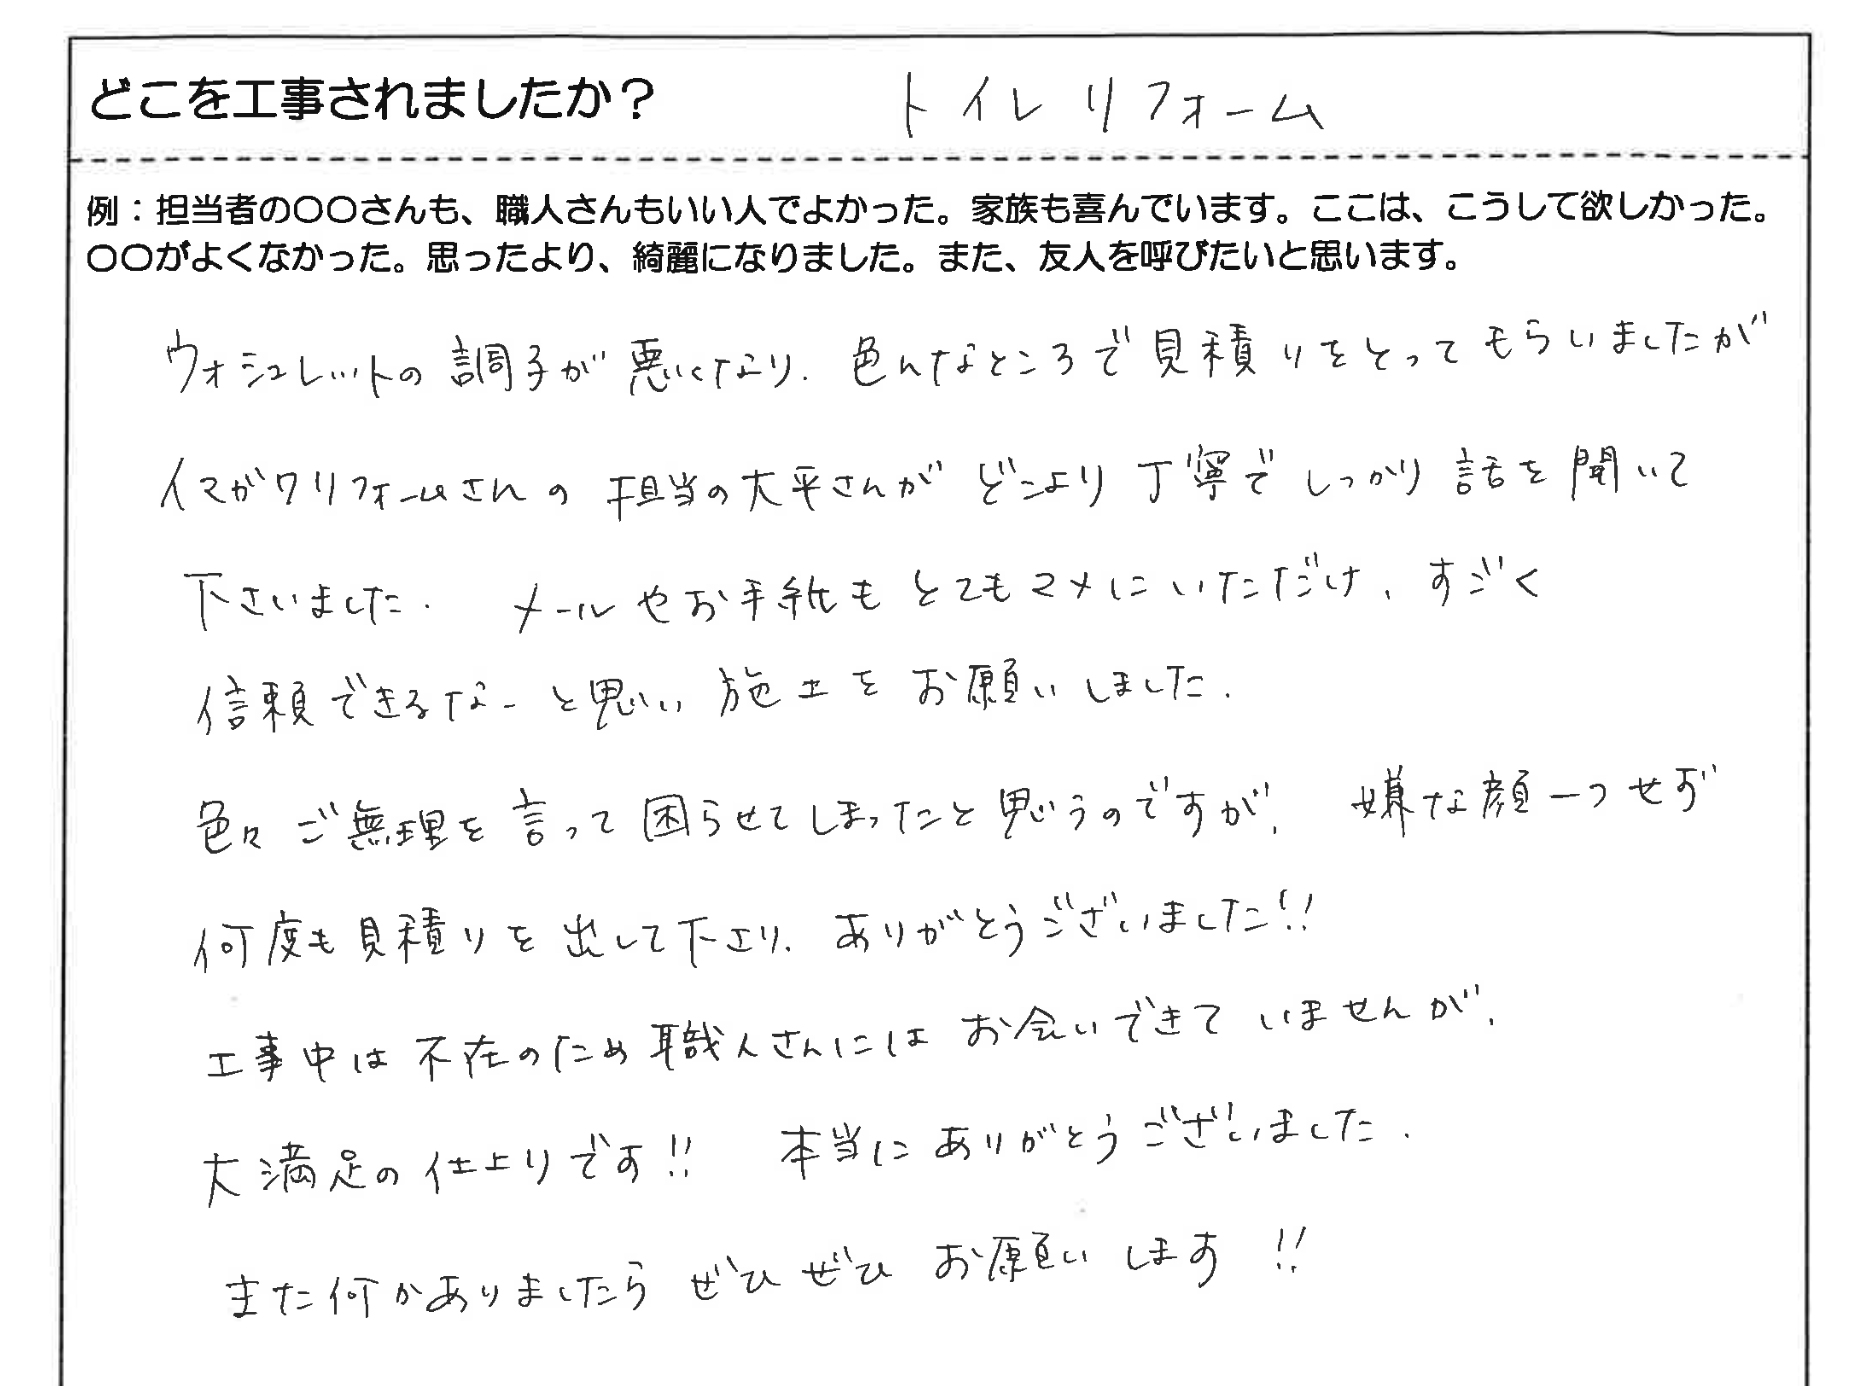 どこを工事されましたか？ トイレリフォーム
例：担当者の〇〇さんも、職人さんもいい人でよかった。家族も喜んでいます。ここは、こうして欲しかった。
〇〇がよくなかった。思ったより、綺麗になりました。また、友人を呼びたいと思います。
ウォシュレットの調子が悪くなり、色んなところで見積りをとってもらいましたが
イマガワリフォームさんの担当の大平さんがどこより丁寧でしっかり話を聞いて
下さいました。メールやお手紙もとてもマメにいただけ、すごく
信頼できるなーと思い施工をお願いしました。
色々ご無理を言って困らせてしまったと思うのですが、嫌な顔一つせず
何度も見積りを出して下さり、ありがとうございました!!
工事中は不在のため職人さんにはお会いできていませんが、
大満足の仕上りです!! 本当にありがとうございました。
また何かありましたらぜひぜひお願いします!!